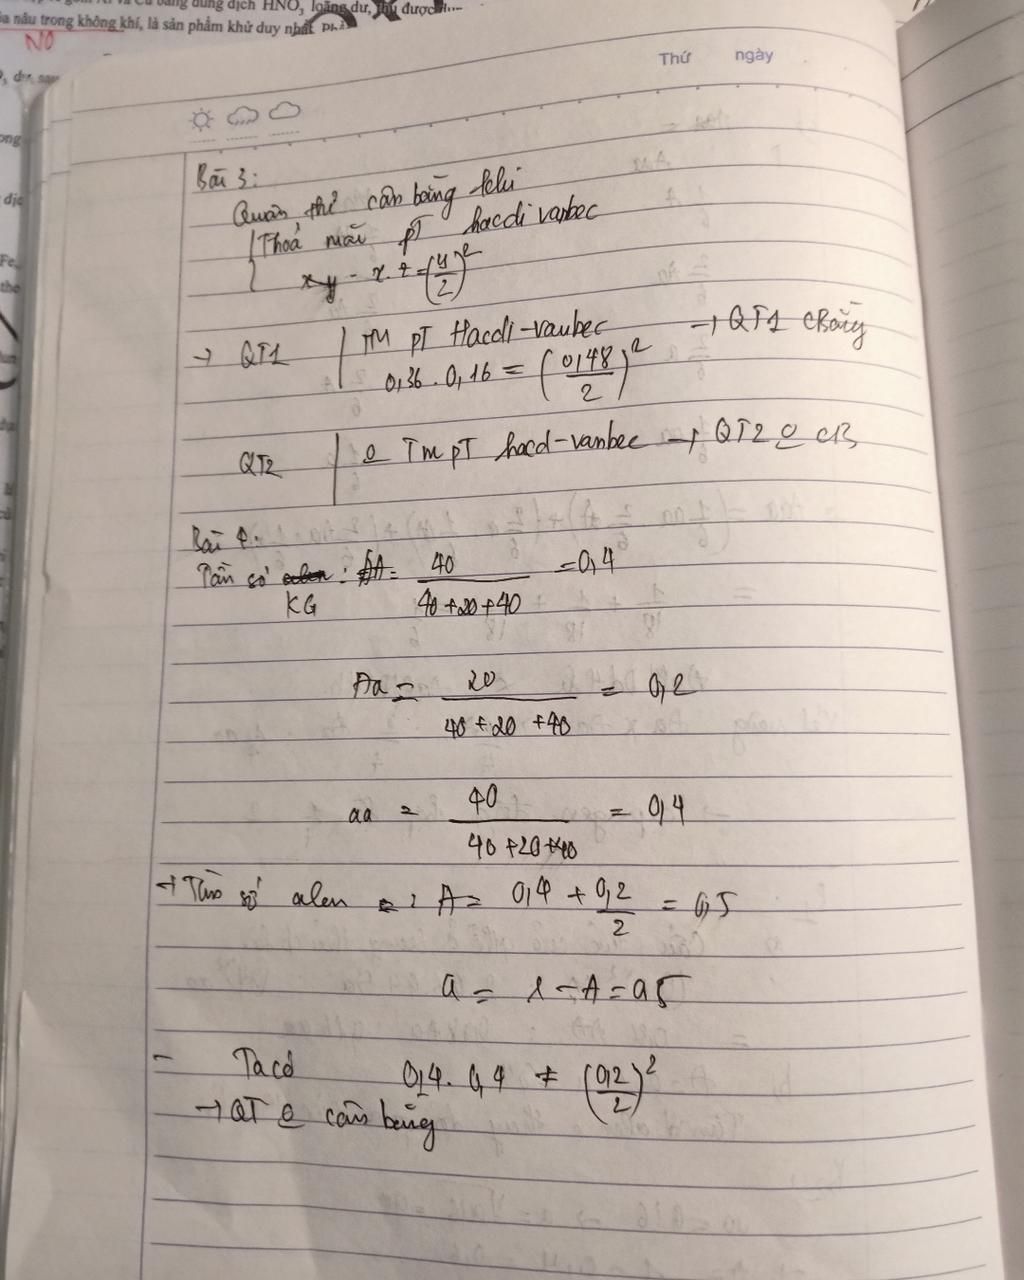 gồm Al và Cu bằng dung dịch HNO3 loãng dư, thu được
nâu trong không khí, là sản phẩm khử duy nhất
NO
Thứ ngày
Bài 3:
Quần thể cân bằng khi
Thoả mãn pT hacdi vanbec
x.z = (y/2)²
→ QT1 TM pT Hacdi-vanbec → QT1 CBằng
0,36 . 0,16 = (0,48/2)²
QT2 O TM pT hacd-vanbec → QT2 O CB
Bài 4:
Tần số : AA = 40/(40+20+40) = 0,4
KG
Aa = 20/(40+20+40) = 0,2
aa = 40/(40+20+40) = 0,4
→ Tần số alen : A = 0,4 + 0,2/2 = 0,5
a = 1 - A = 0,5
- Ta có 0,4 . 0,4 ≠ (0,2/2)²
→ QT O cân bằng